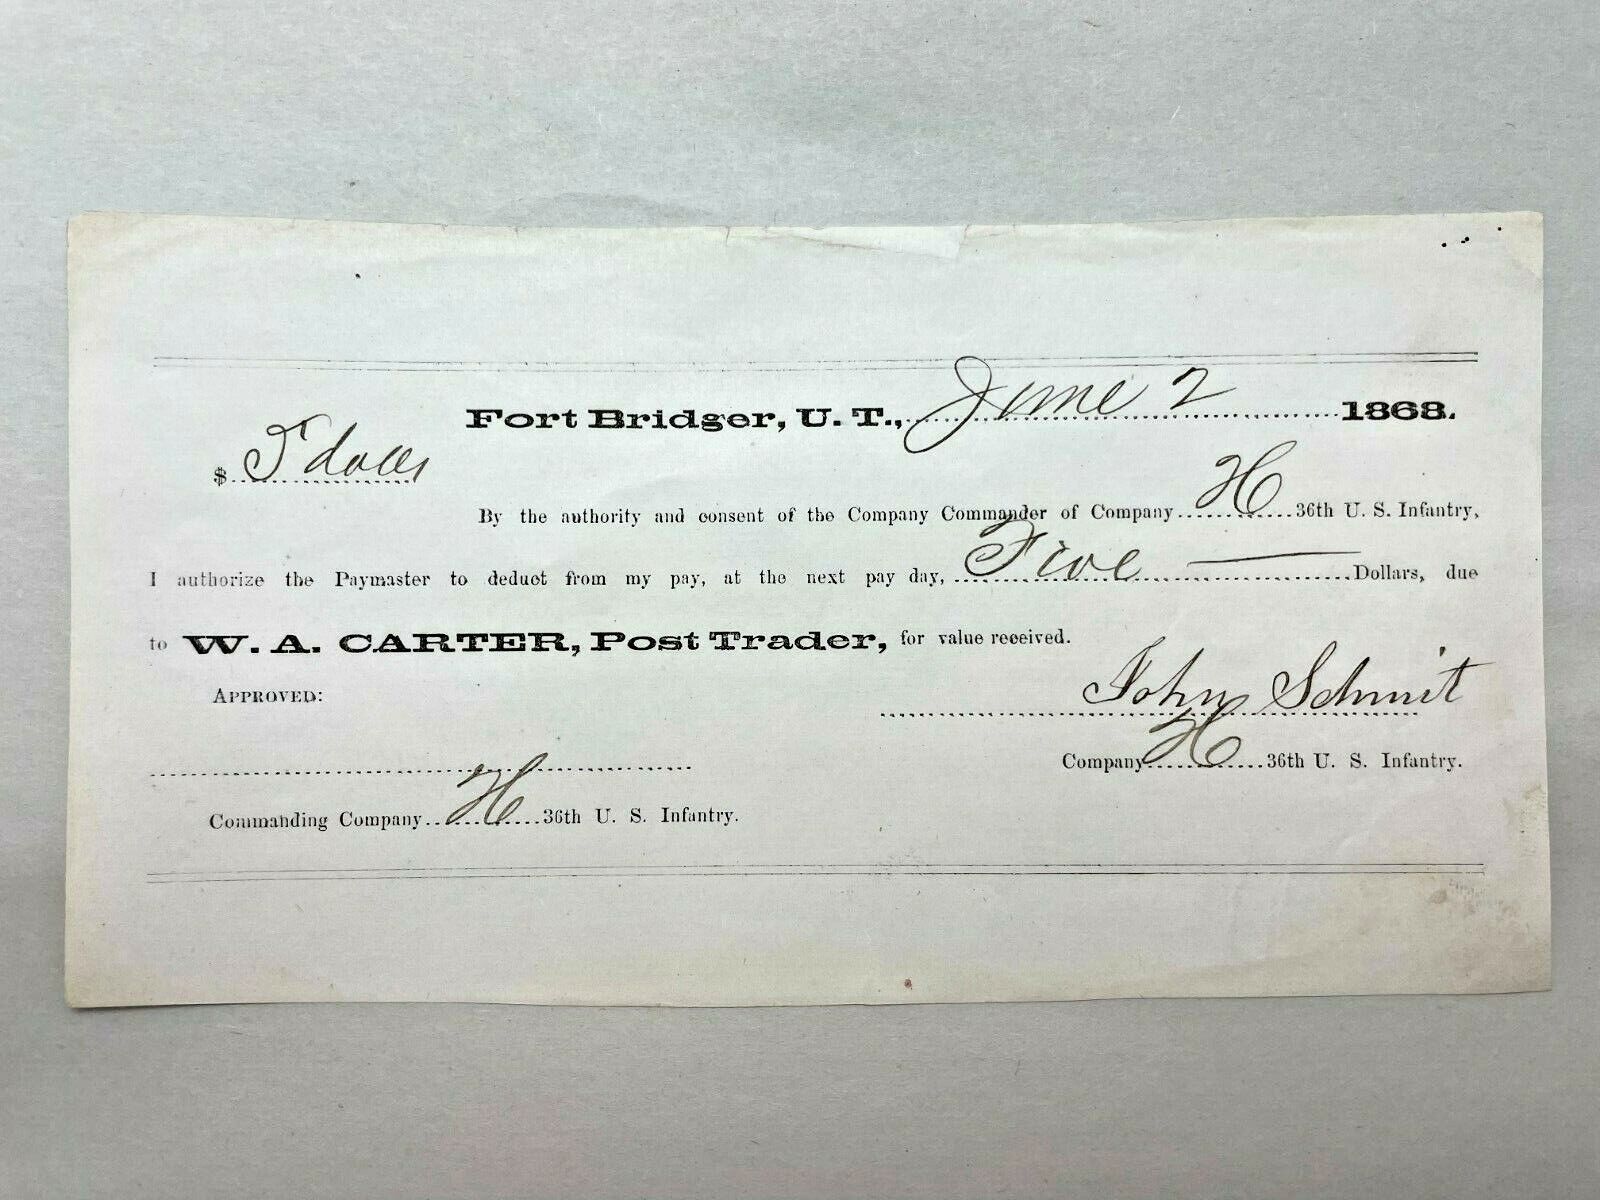 Fort Bridger, U. T., June 2 1868.
$ 5 dolls
By the authority and consent of the Company Commander of Company H 36th U. S. Infantry,
I authorize the Paymaster to deduct from my pay, at the next pay day, Five — Dollars, due
to W. A. CARTER, Post Trader, for value received.
APPROVED:
John Schmit
Company H 36th U. S. Infantry.
Commanding Company H 36th U. S. Infantry.